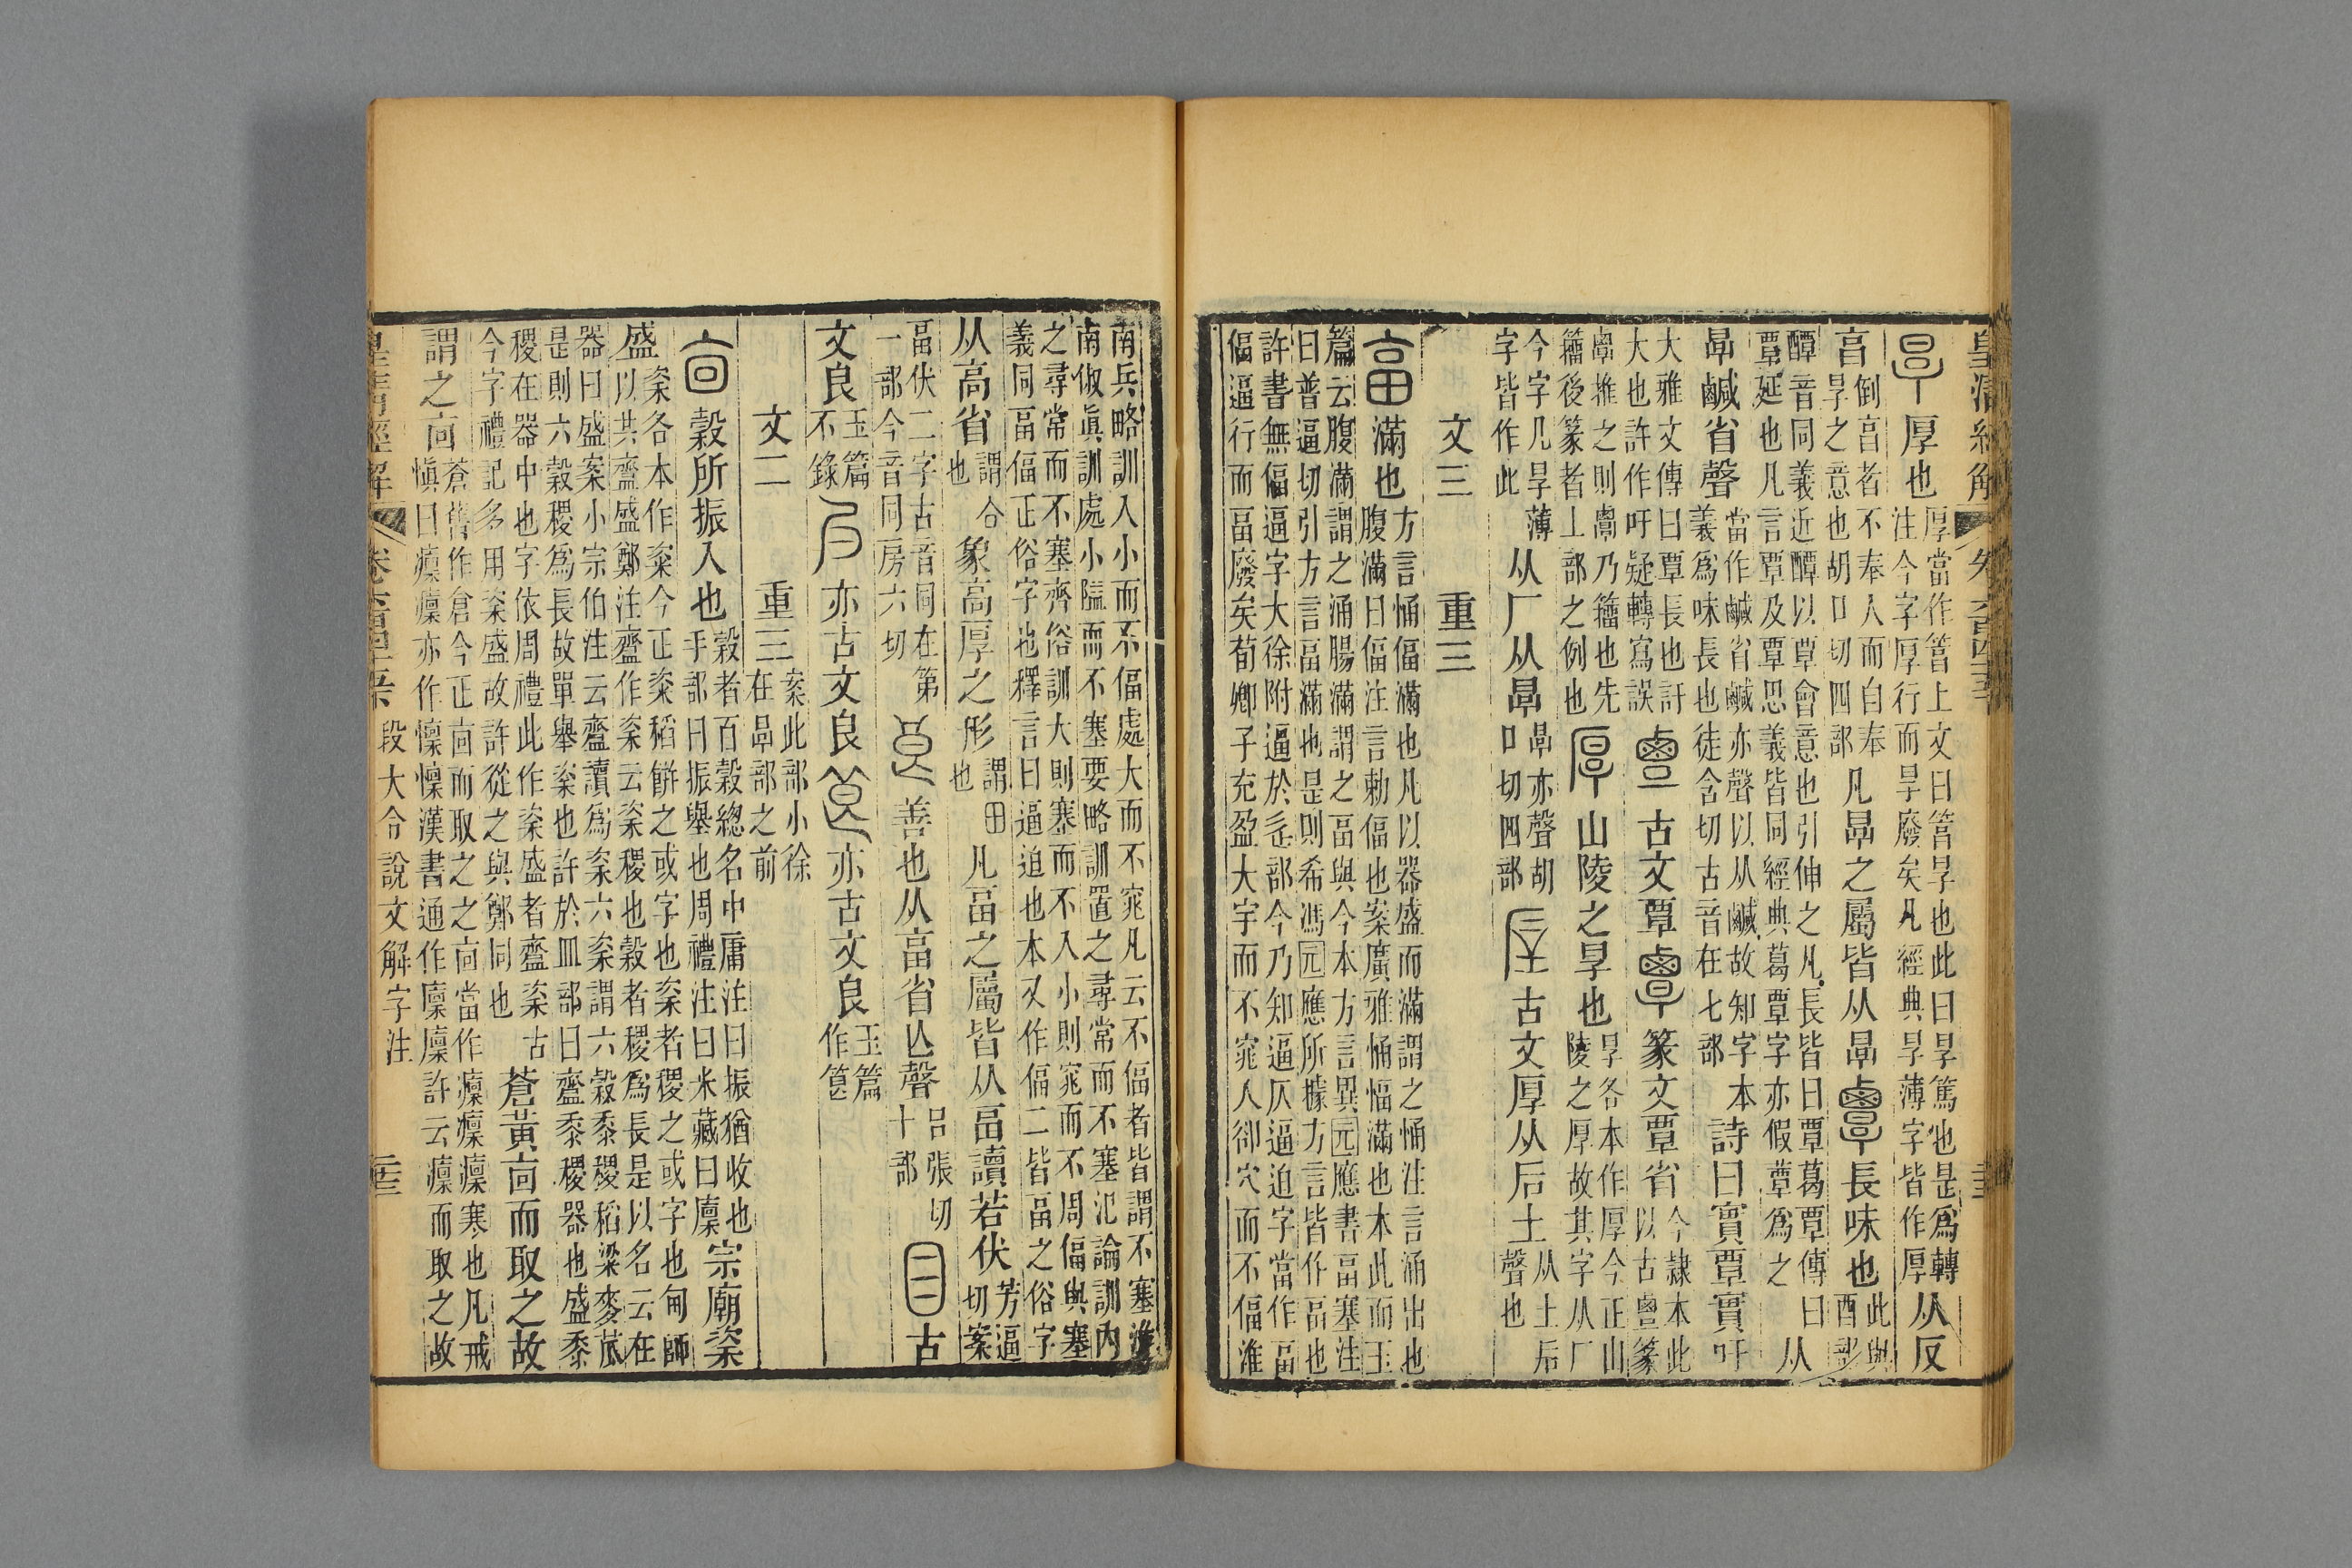 皇清經解
厚也厚當作𥳑上文曰𥳑㫗也此曰㫗篤也是爲轉
注今字厚行而㫗廢矣凡經典㫗薄字皆作厚从反
亯倒亯者不奉人而自奉
㫗之意也胡口切四部凡㫗之屬皆从㫗長味也此與
醰音同義近醰以覃會意也引伸之凡長皆曰覃葛覃傳曰
覃延也凡言覃及覃思義皆同經典葛覃字亦假蕈爲之从
㫗鹹省聲當作鹹省鹹亦聲以从鹹故知字本
義爲味長也徒含切古音在七部詩曰實覃實吁
大雅文傳曰覃長也訏
大也許作吁疑轉寫誤古文覃篆文覃省今隸本此
以古㫗篆此
𠧪推之則𠧪乃籒也先
籒後篆者上部之例也山陵之㫗也㫗各本作厚今正山
陵之厚故其字从厂
今字凡㫗薄
字皆作此从厂从㫗㫗亦聲胡
口切四部古文厚从后土从土后
聲也
文三 重三
滿也方言悀偪滿也凡以器盛而滿謂之悀注言涌出也
腹滿曰偪注言勅偪也案廣雅悀愊滿也本此而玉
篇云腹滿謂之涌腸滿謂之畐與今本方言異元應書畐塞注
曰普逼切引方言畐滿也是則希馮元應所據方言皆作畐也
許書無偪逼字大徐附逼於辵部今乃知逼仄逼迫字當作畐
偪逼行而畐廢矣荀卿子充盈大宇而不窕入卻穴而不偪淮
南兵略訓入小而不偪處大而不窕凡云不偪者皆謂不塞淮
南俶眞訓處小隘而不塞要略訓置之尋常而不塞氾論訓內
之尋常而不塞齊俗訓大則塞而不入小則窕而不周偪與塞
義同畐偪正俗字也釋言曰逼迫也本又作偪二皆畐之俗字
从高省謂合
也象高厚之形謂田
也凡畐之屬皆从畐讀若伏芳逼
切案
畐伏二字古音同在第
一部今音同房六切善也从畐省亾聲呂張切
十部古
文良玉篇
不錄亦古文良亦古文良玉篇
作𥫱
文二 重三案此部小徐
在㫗部之前
穀所振入也穀者百穀總名中庸注曰振猶收也
手部曰振舉也周禮注曰米藏曰廩宗廟粢
盛粢各本作粢今正粢稻餅之或字也粢者稷之或字也甸師
以共齍盛鄭注齍作粢云粢稷也穀者稷爲長是以名云在
器曰盛案小宗伯注云齍讀爲粢六粢謂六穀黍稷稻粱麥苽
是則六穀稷爲長故單舉粢也許於皿部曰齍黍稷器也盛黍
稷在器中也字依周禮此作粢盛者齍粢古
今字禮記多用粢盛故許從之與鄭同也蒼黃㐭而取之故
謂之㐭蒼舊作倉今正㐭而取之之㐭當作癛癛癛寒也凡戒
愼曰癛癛亦作懍懍漢書通作廩廩許云癛而取之故
皇淸經解 段大令說文解字注